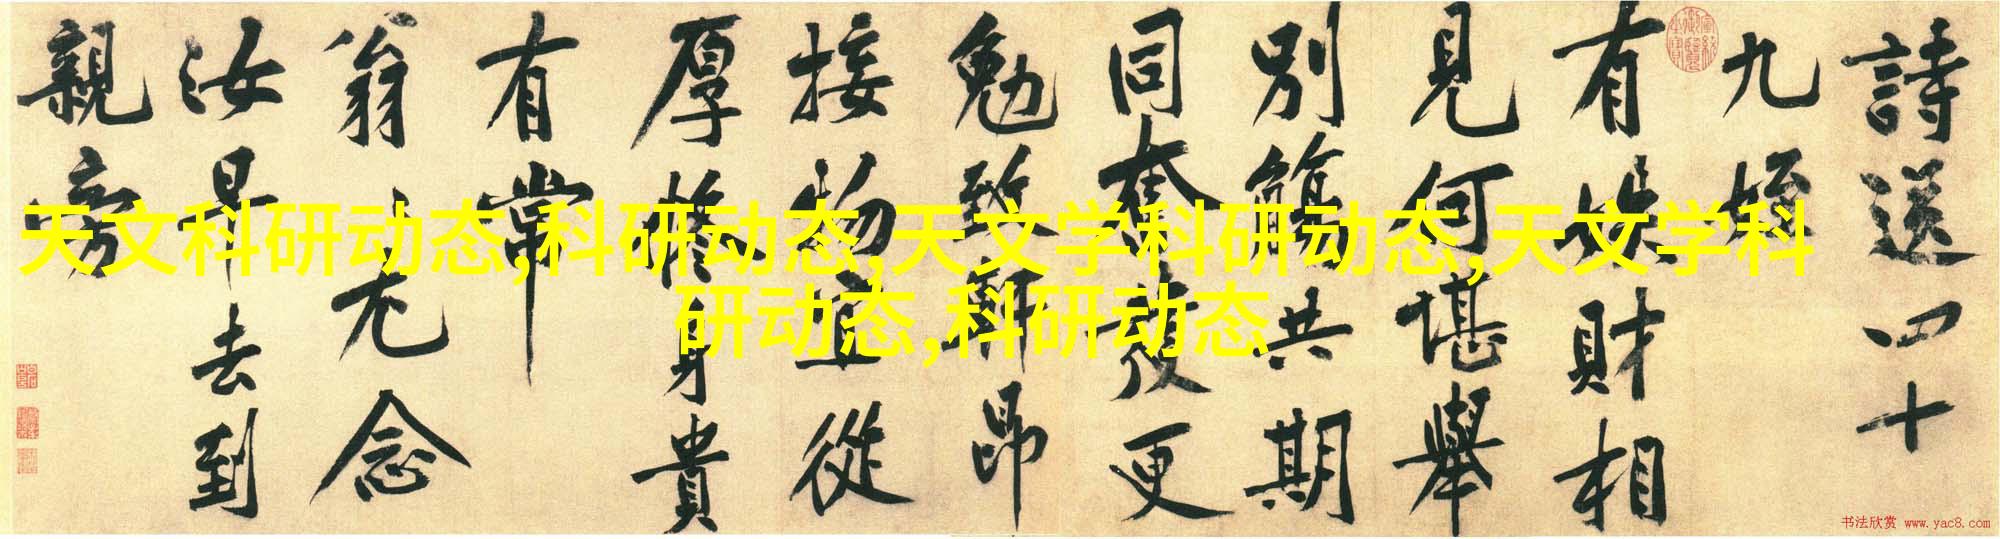 詩送四十
九姪
有妷財相
見何堪舉
別觴共期
同奮發更
勉致軒昂
接物宜從
厚修身貴
有常
翁〻尤念
汝早去到
親旁
天文科研动态,科研动态,天文学科研动态,天文学科
研动态,科研动态
书法欣赏 www.yac8.com